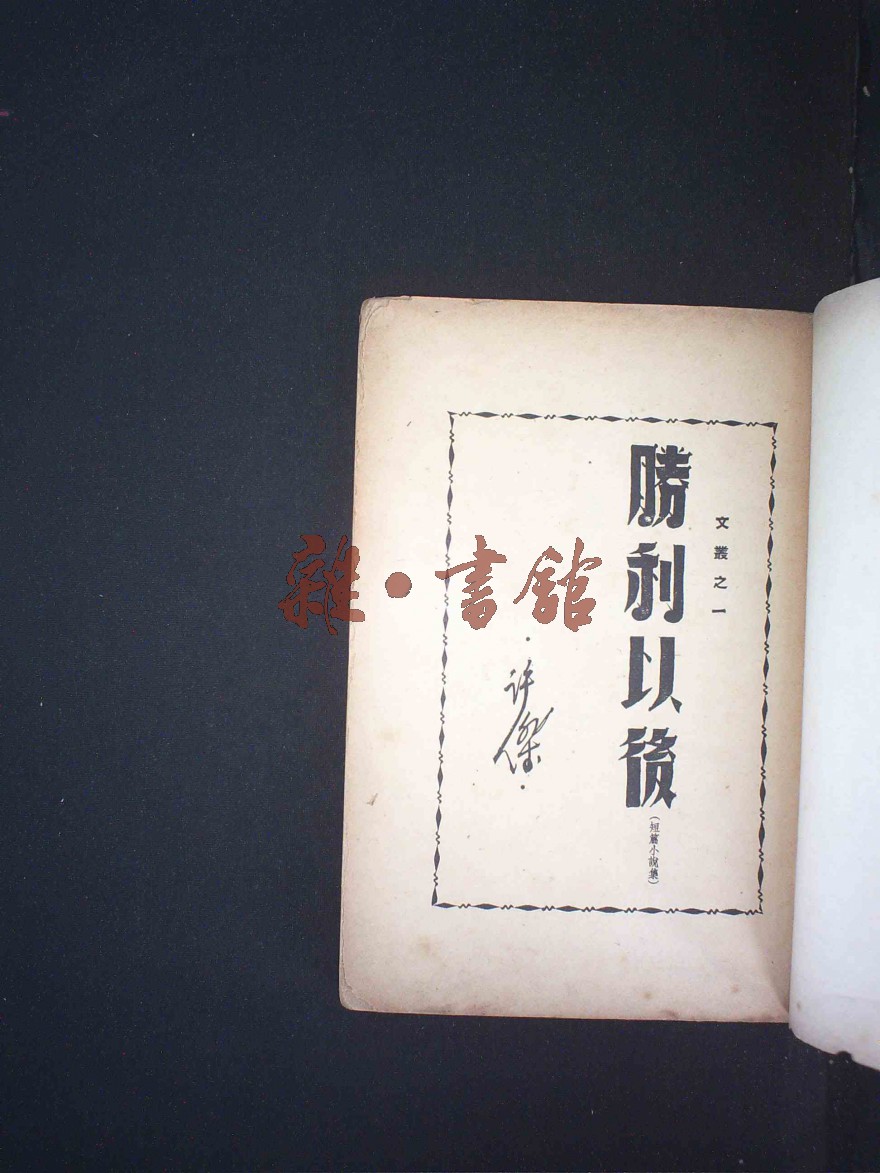 文叢之一
勝利以後
(短篇小說集)
·許傑·
雜·書館